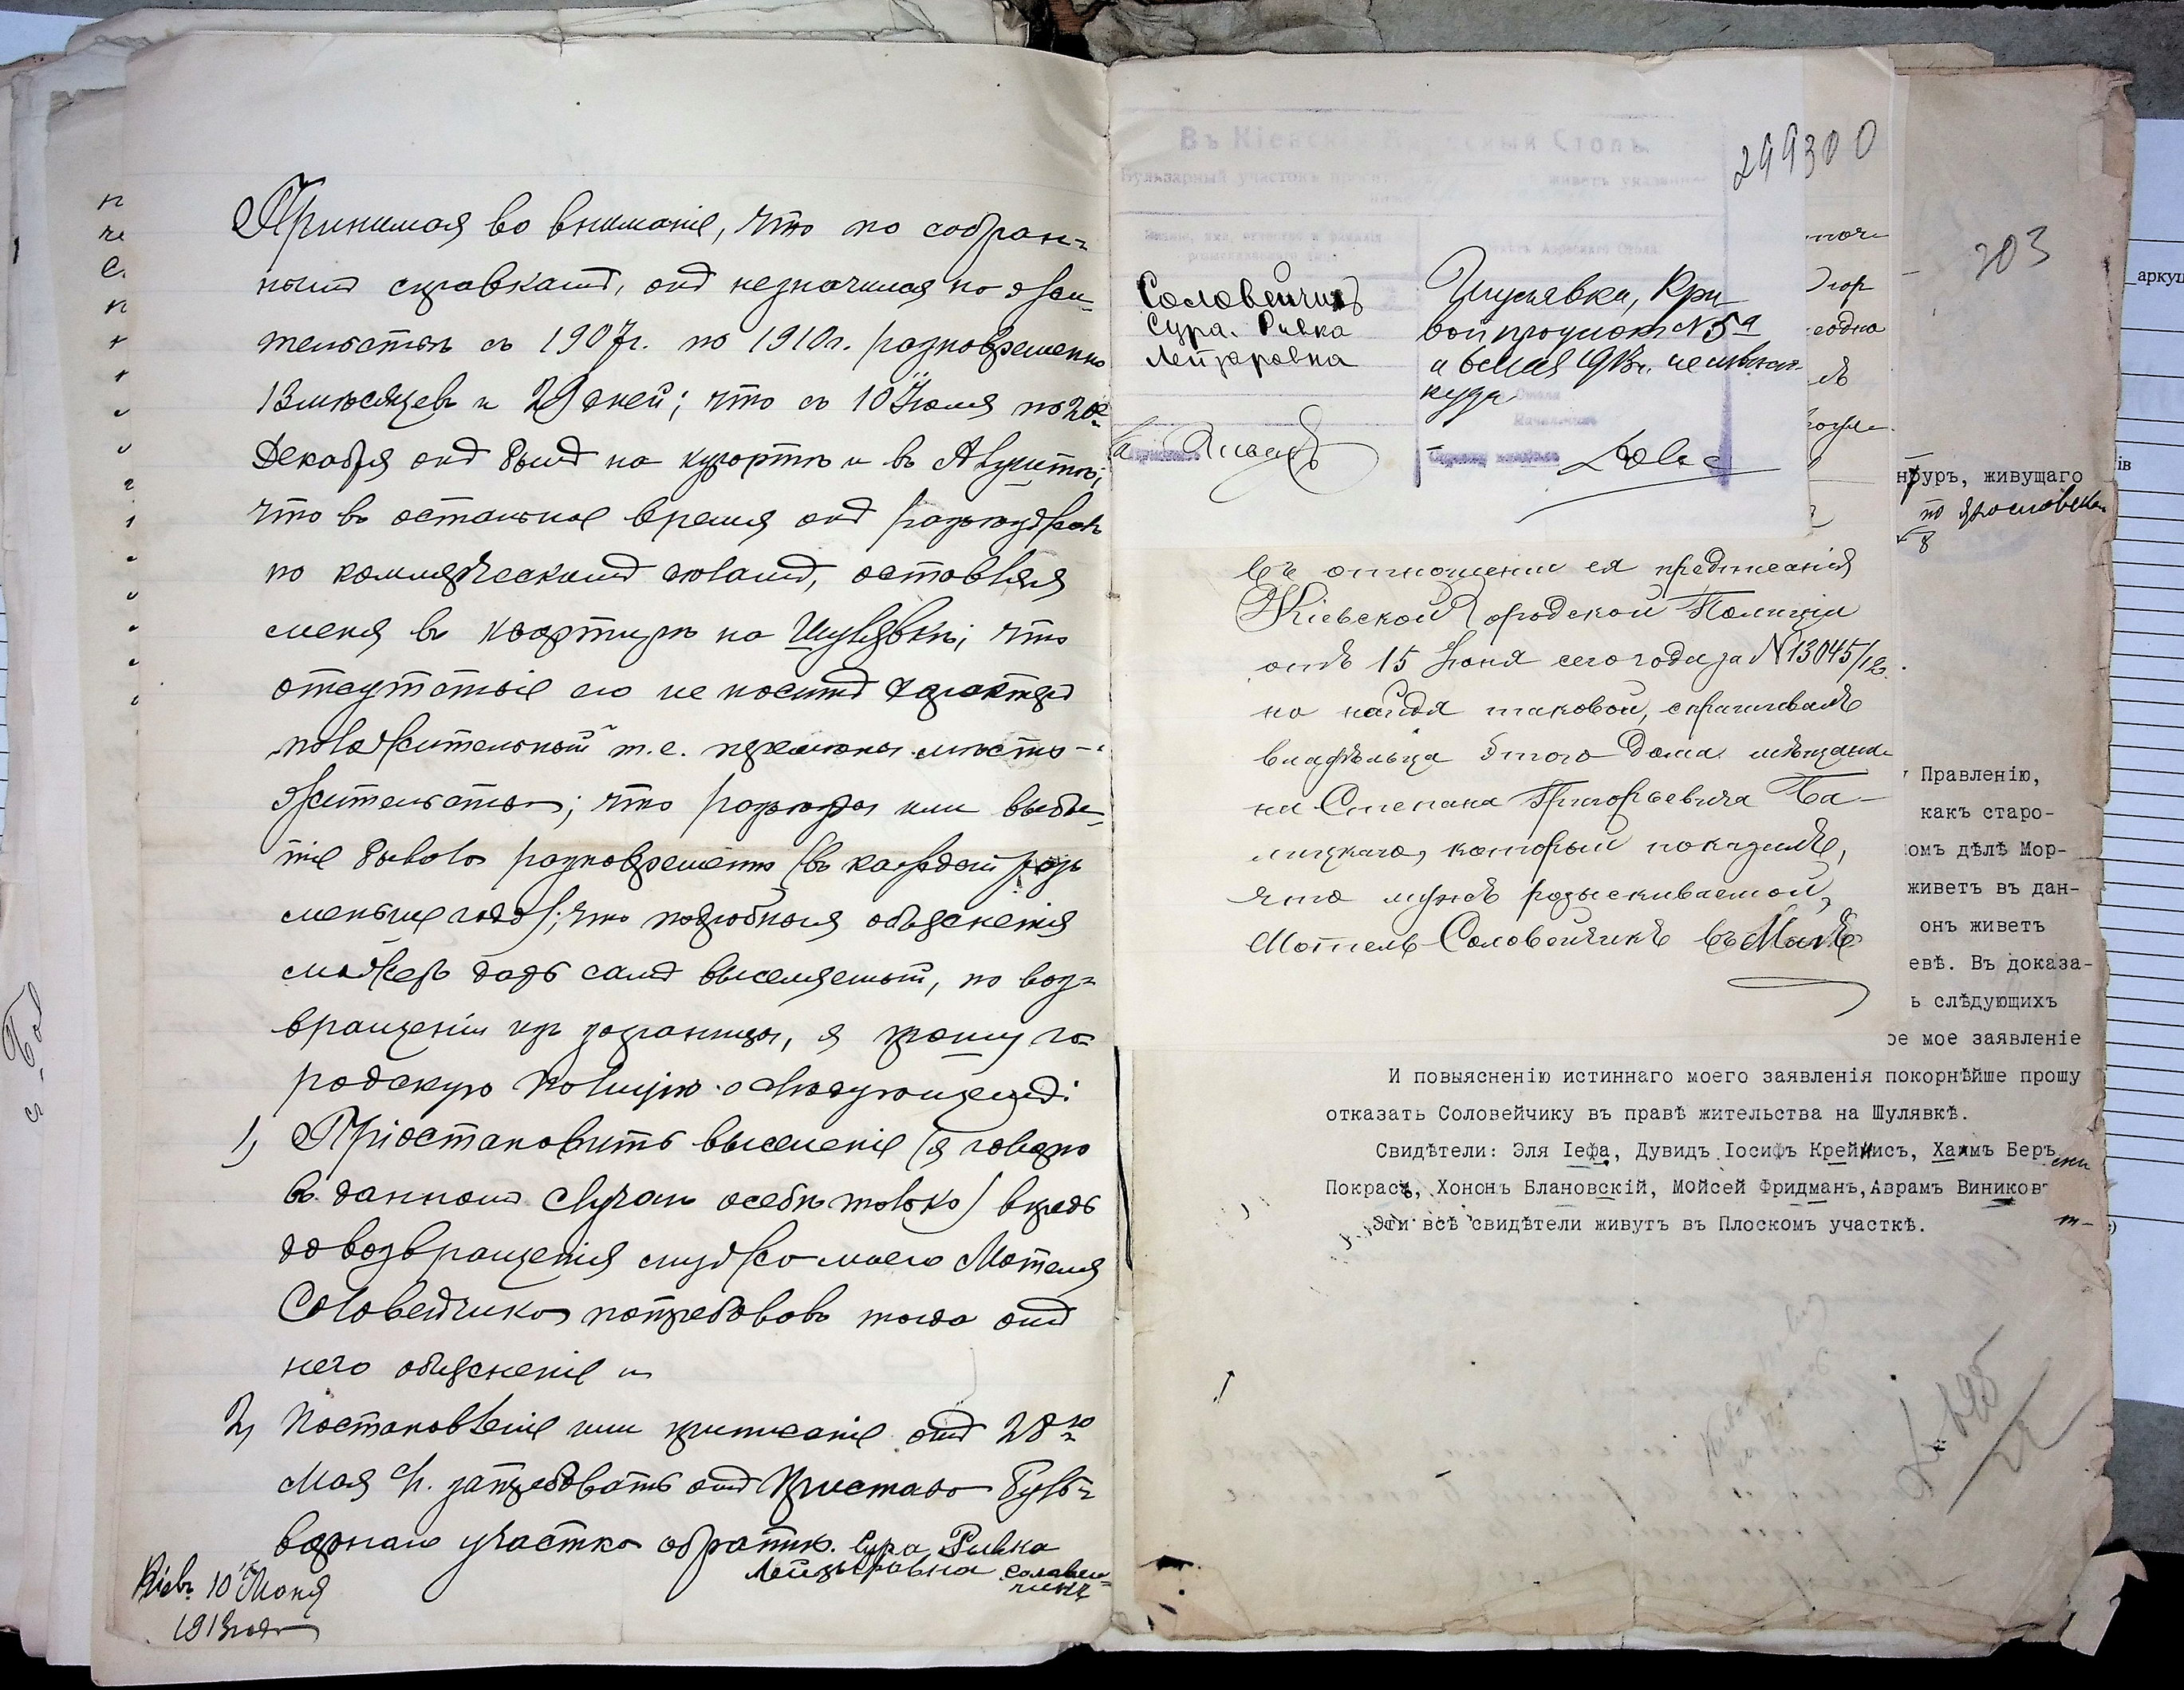 Принимая во вниманіе, что по собран-
нымъ справкамъ, онъ незначился по жи-
тельствѣ съ 1907г. по 1910г. разновременно
13 мѣсяцев и 29 дней; что съ 10 Іюля по 20е
Декабря онъ былъ на курортѣ и въ
что въ остальное время онъ разъѣзжал
по коммерческимъ дѣламъ, оставляя
меня въ квартирѣ на Шулявкѣ; что
отсутствіе его не носитъ характера
т.е. перемѣны мѣсто-
жительства; что разъѣзды или выбы-
тіе бывало разновременно (въ каждый раз
меньше года); что подробныя объясненія
можетъ дать самъ выселяемый, по воз-
вращеніи изъ заграницы, я прошу го-
родскую полицію о слѣдующемъ:
1) Пріостановить выселеніе (я говорю
въ данномъ случаѣ о себѣ только) впредь
до возвращенія мужа моего Мотеля
Соловейчика потребовавъ тогда отъ
него объясненіе и
2) Постановленіе или предписаніе отъ 28го
Мая с.г. затребовать отъ Пристава Буль-
варнаго участка обратно. Сура Ривка
Лейзеровна Соловей-
чикъ
Кіевъ 10 Іюня
1913 года
299300
Въ Кіевскій Адресный Столъ
Бульварный участокъ
Соловейчикъ
Сура-Ривка
Лейзеровна
Шулявка, Кри
вой проулок №5а
и выбыла неизвѣстно
куда
203
нфуръ, живущаго
по Ярославской
8
въ отношеніи ея предписанія
Кіевской Городской Полиціи
отъ 15 Іюня сего года за №13045/12
но найдя таковой, спрашивалъ
владѣльца этого дома мѣщани-
на Степана Григорьевича Ба-
лицкаго, который показалъ,
что мужъ разыскиваемой,
Мотель Соловейчикъ въ Маѣ
Правленію,
какъ старо-
омъ дѣлѣ Мор-
живетъ въ дан-
онъ живетъ
евѣ. Въ доказа-
ь слѣдующихъ
ое мое заявленіе
И повыясненію истиннаго моего заявленія покорнѣйше прошу
отказать Соловейчику въ правѣ жительства на Шулявкѣ.
Свидѣтели: Эля Іефа, Дувидъ Іосифъ Крейнисъ, Хаимъ Беръ
Покрасъ, Хононъ Блановскій, Мойсей Фридманъ, Аврамъ Виников
Эти всѣ свидѣтели живутъ въ Плоскомъ участкѣ.